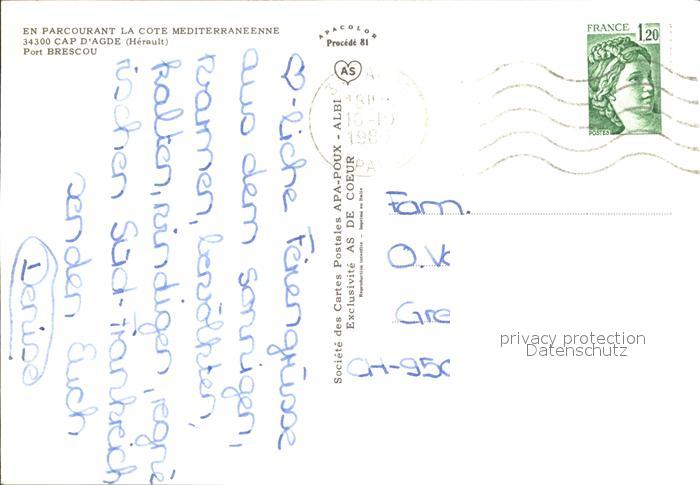 EN PARCOURANT LA COTE MEDITERRANEENNE
34300 CAP D'AGDE (Hérault)
Port BRESCOU
APACOLOR
Procédé 81
AS
Société des Cartes Postales APA-POUX - ALBI
Exclusivité AS DE COEUR
Reproduction interdite - Imprimé en Italie
FRANCE
1,20
POSTES
♡-liche Feriengrüsse
aus dem sonnigen,
warmen, bewölkten,
kalten, windigen, regne
rischen Süd-Frankreich
senden Euch
Denise
Fam.
O. Vo
Gre
CH-950
privacy protection
Datenschutz